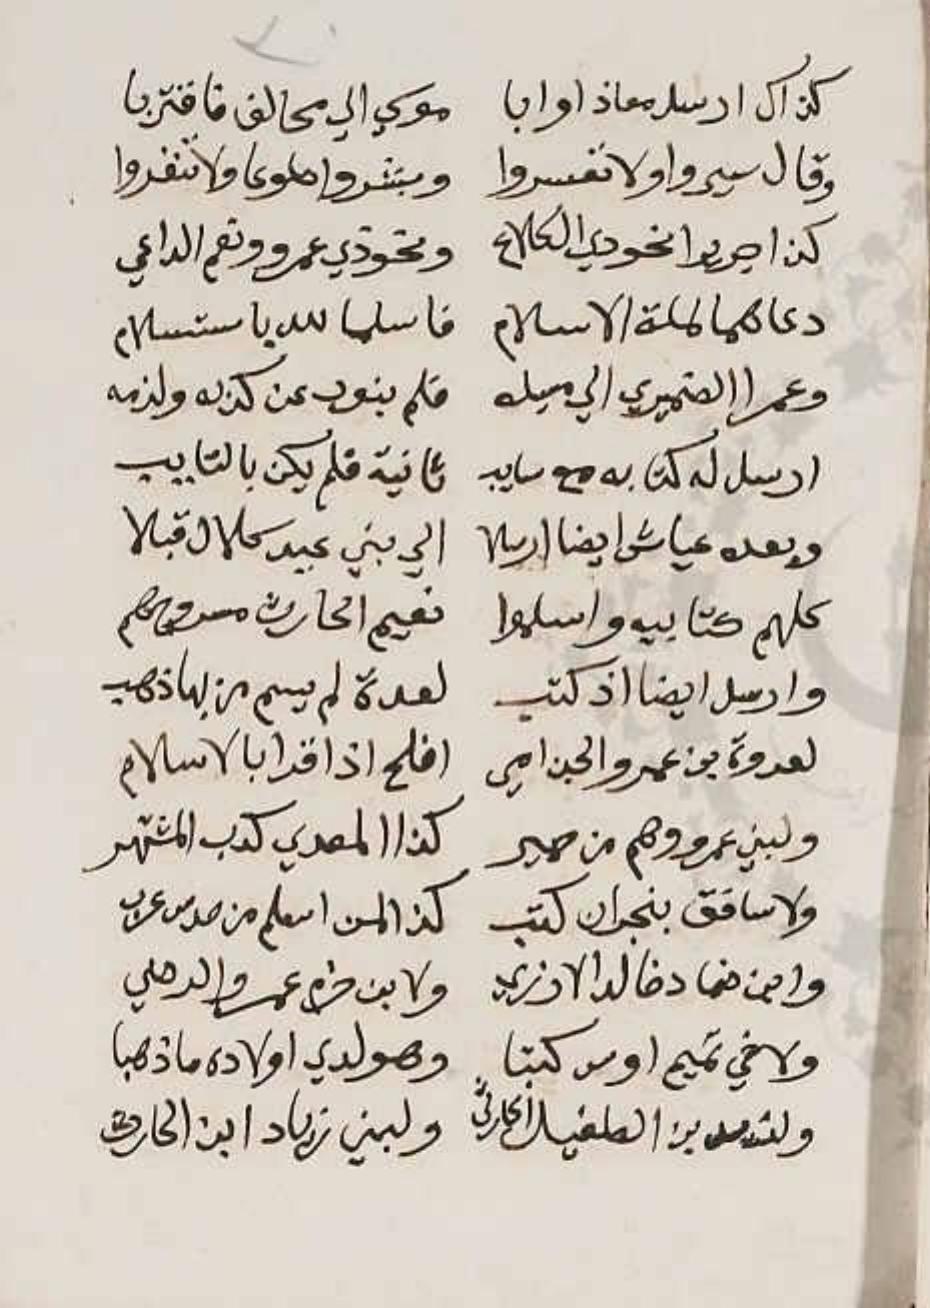 كذاك ارسل معاذ او ابا موسي الي مخالف فاقتربا
وقال سيروا ولا تعسروا وبشروا طوعا ولا تنفروا
كذا جرير نحو ذي الكلاع ونحو ذي عمرو ونعم الداعي
دعاهما لملة الاسلام فاسلما لله باستسلام
وعمرا الضميري الي مسيلمه فلم يتوب عن كذبه ولزمه
ارسل له كتابه مع سايب ثانية فلم يكن بالتايب
وبعده عياش ايضا ارسلا الي بني عبد كلال قبلا
كلهم كتابيه واسلموا نعيم الحارث مسروحهم
وارسل ايضا اذ كتب لعدة لم يسم من بها ذهب
لعدوة بن عمرو الجذامي افلح اذ اقرا بالاسلام
ولبني عمرو وهم من حمير كذا المعدي كذب المشتهر
ولا ساقف بنجران كتب كذا لمن اسلم من عرب
وابن ضماد خالد الازدي ولابن حزم عمرو الرضي
ولاخي تميم اوس كتبا وهو لدي اولاده ما ذهبا
بن الطفيل الحارثي ولبني زياد ابن الحارث